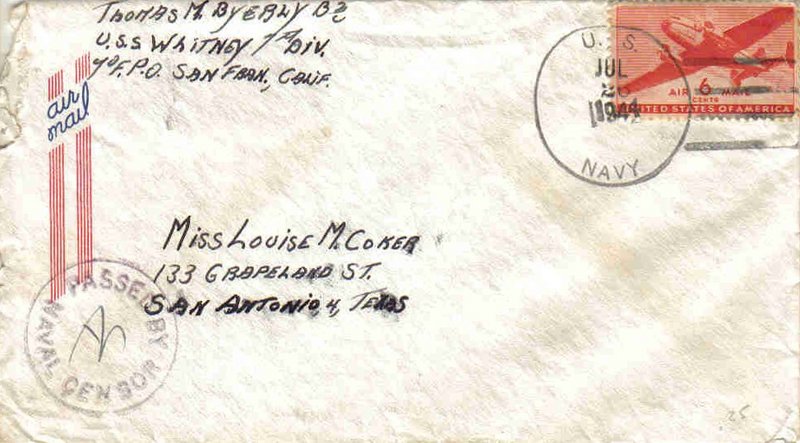 Thomas M. Byerly B2/c
U.S.S. Whitney 1st Div.
℅ F.P.O. San Fran, Calif.
air
mail
U. S.
JUL
1944
NAVY
AIR 6 MAIL
CENTS
UNITED STATES OF AMERICA
Miss Louise M. Coker
133 Grapeland St.
San Antonio, 4, Texas
PASSED BY
NAVAL CENSOR
25